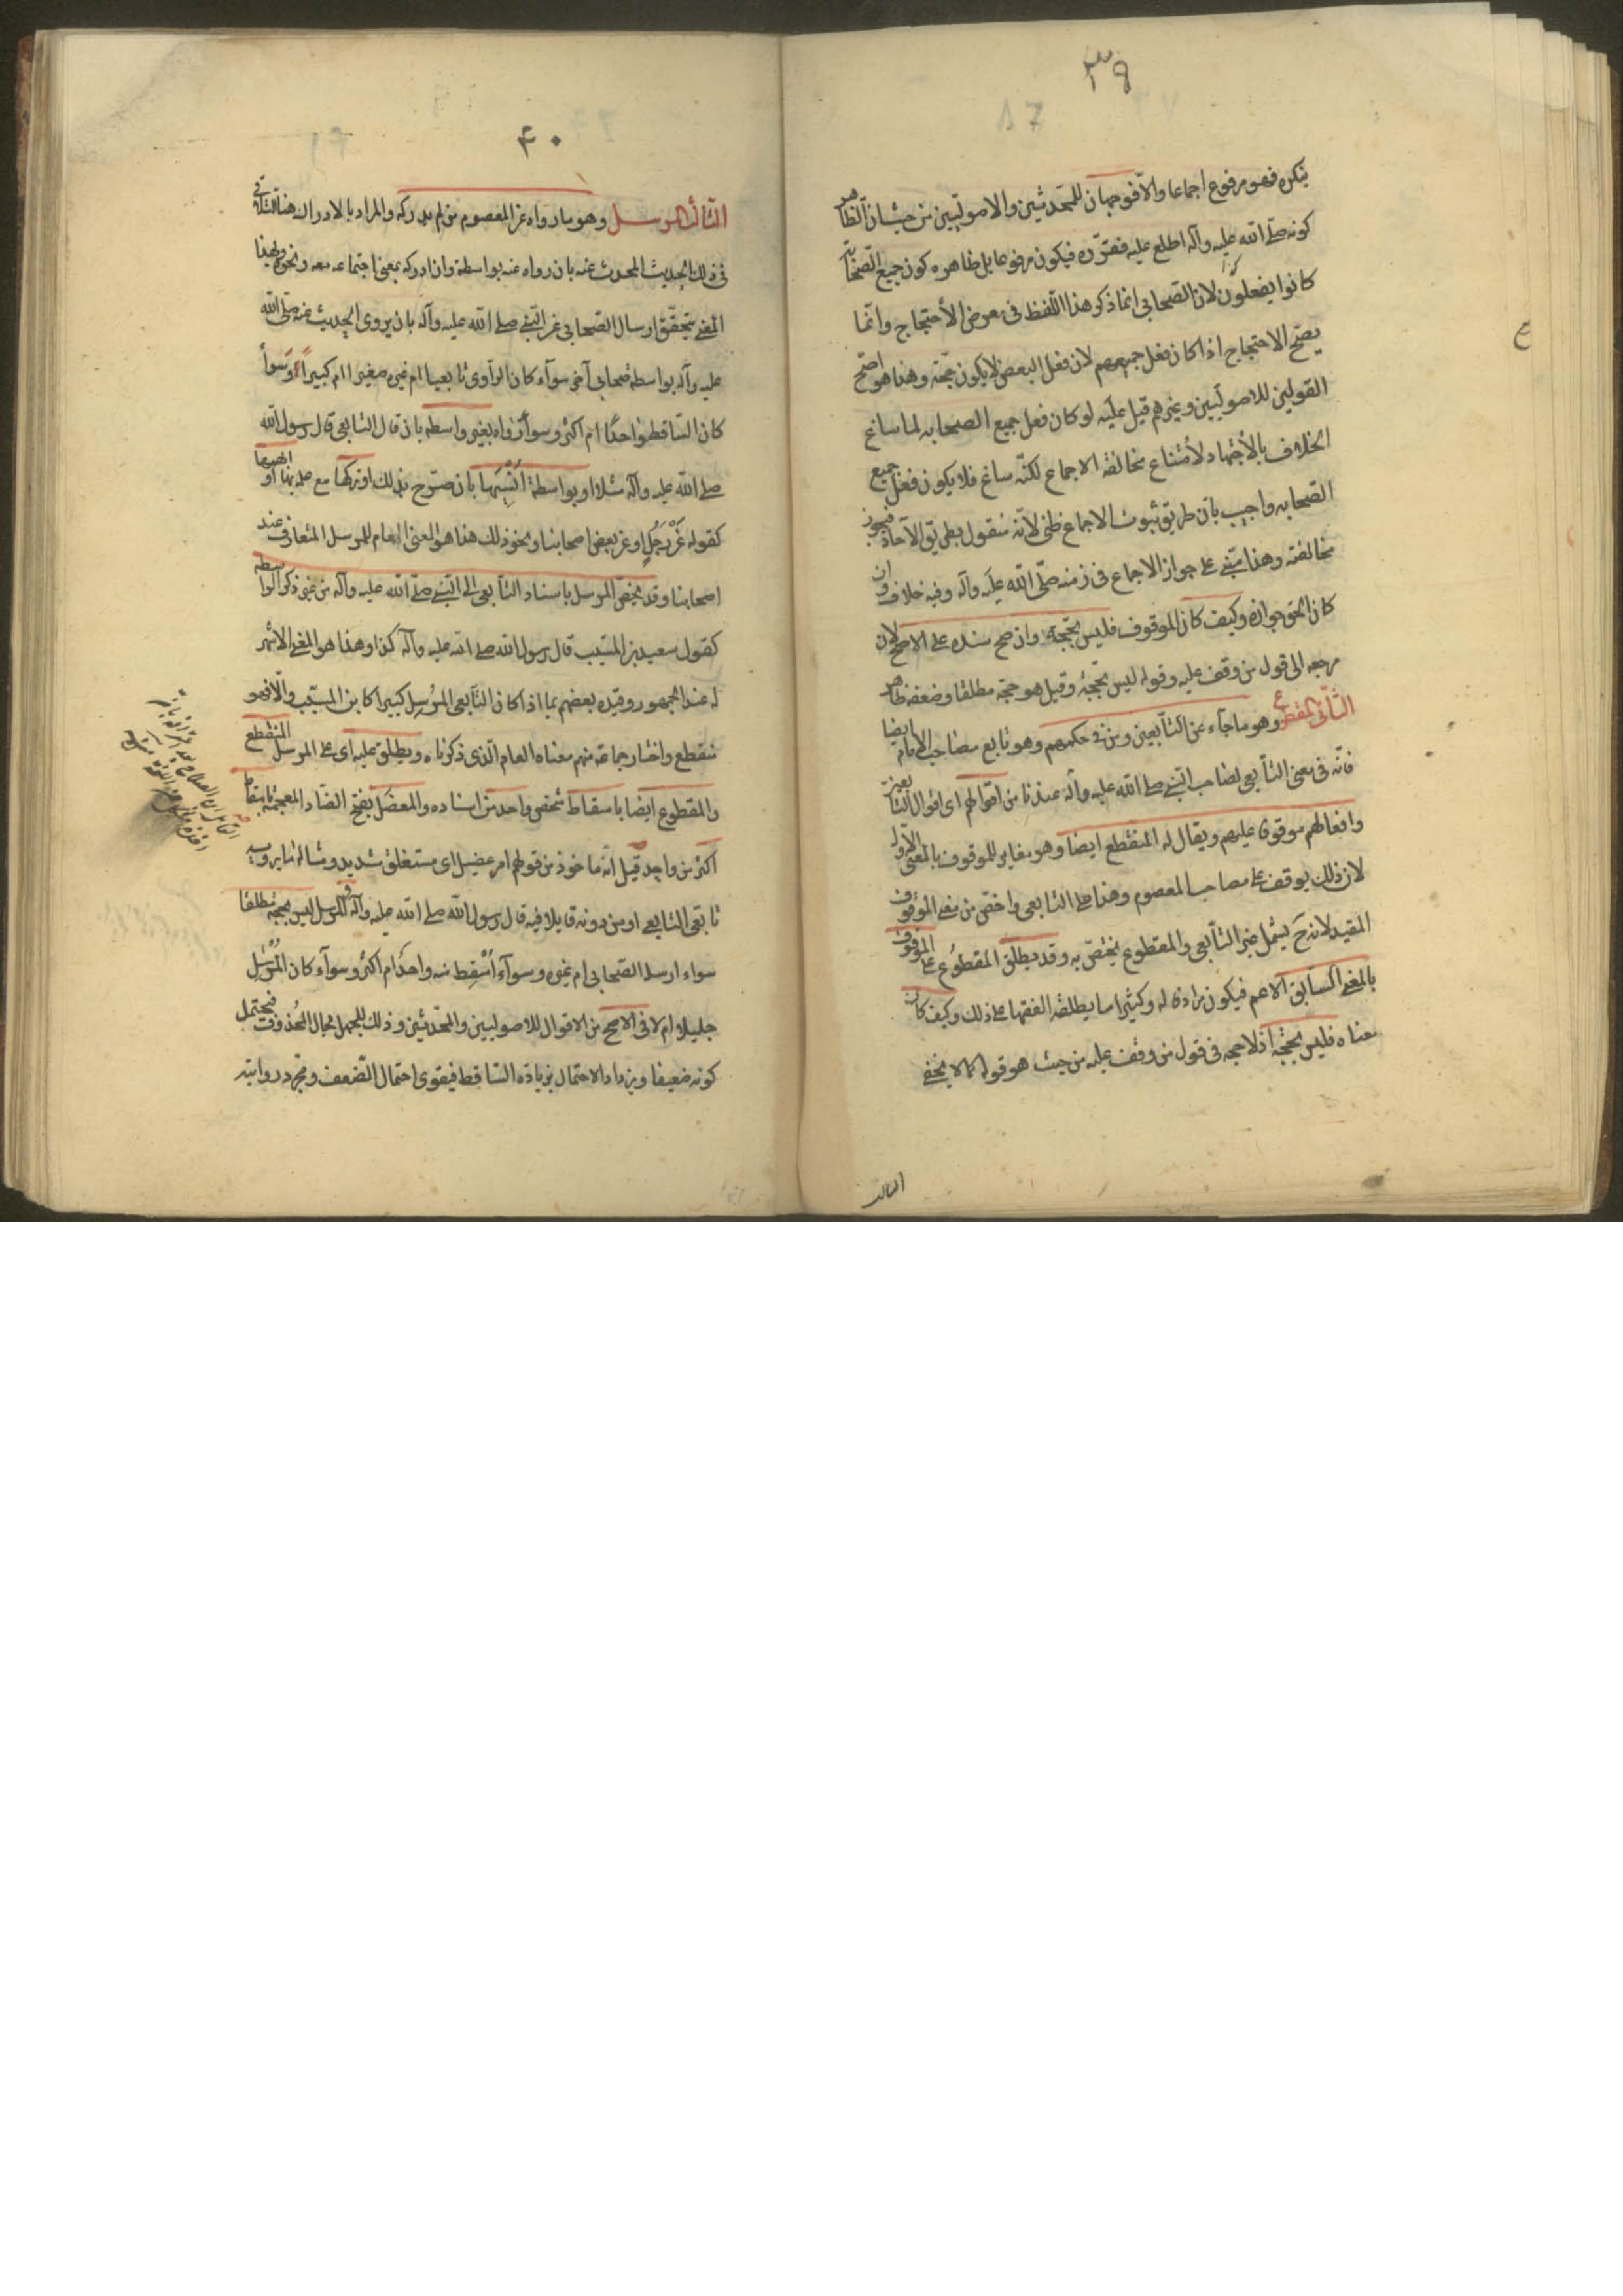 ٣٩
ينكره فهو مرفوع اجماعا والّا فوجهان للمحدثين والاصوليين من حيث ان الظاهر
كونه صلى الله عليه وآله اطلع عليه فقرّره فيكون مرفوعا بل ظاهره كون جميع الصحابة
كانوا يفعلون لان الصحابي انما ذكر هذا اللفظ في معرض الأحتجاج وانما
يصحّ الاحتجاج اذا كان فعل جميعهم لان فعل البعض لا يكون حجّة وهذا هو اصحّ
القولين للاصوليين وغيرهم قيل عليه لو كان فعل جميع الصحابه لما ساغ
الخلاف بالأجتهاد لأمتناع مخالفة الاجماع لكنّه ساغ فلا يكون فعل جميع
الصحابه واجيب بان طريق ثبوت الاجماع ظنى لانّه منقول بطريق الآحاد فيجوز
مخالفته وهذا مبنى على جواز الاجماع في زمنه صلّى الله عليه وآله وفيه خلاف وان
كان الحق جوازه وكيف كان الموقوف فليس بحجّة وان صح سنده على الاصح لان
مرجعه الى قول من وقف عليه وقوله ليس بحجّة وقيل هو حجّة مطلقا وضعفه ظاهر
الثّانى المقطوع وهو ما جآء عن التّابعين ومن في حكمهم وهو تابع مصاحب الامام ايضا
فانّه في معنى التابعى لصاحب النّبى صلى الله عليه وآله عندنا من اقوالهم اى اقوال التابعين
وافعالهم موقوفا عليهم ويقال له المنقطع ايضا وهو مغاير للموقوف بالمعنى الاوّل
لان ذلك يوقف على مصاحب المعصوم وهذا على التابعى واخصّ من معنى الموقوف
المقيد لانه ح يشمل غير التّابعى والمقطوع يختصّ به وقد يطلق المقطوع على الموقوف
بالمعنى السّابق الاعم فيكون مرادفا له وكثيرا ما يطلقه الفقهاء على ذلك وكيف كان
معناه فليس بحجّة اذ لا حجه في قول من وقف عليه من حيث هو قوله كما لا يخفى
الثالث
٤٠
الثّالث المرسل وهو ما رواه عن المعصوم من لم يدركه والمراد بالادراك هنا التلاقى
في ذلك الحديث المحدث عنه بان رواه عنه بواسطة وان ادركه بمعنى اجتماعه معه ونحوه وبهذا
المعنى يتحقّق ارسال الصّحابى عن النّبى صلى الله عليه وآله بان يروى الحديث عنه صلّى الله
عليه وآله بواسطة صحابى آخر سوآء كان الرّاوى تابعيا ام غيره صغيرا ام كبيراً وسوآ
كان السّاقط واحداً ام اكثر وسوآ رواه بغير واسطه بان قال التابعى قال رسول الله
صلى الله عليه وآله مثلا او بواسطة اُنْسِيَها بان صرّح بذلك او تركها مع علمه بها او ابهمها
كقوله عَنْ رَجُلٍ او عن بعض اصحابنا ونحو ذلك هذا هو المعنى العام للمرسل المتعارف عند
اصحابنا وقد يختصّ المرسل باسناد التابعى الى النّبى صلّى الله عليه وآله من غير ذكر الواسطه
كقول سعيد بن المسيّب قال رسول الله صلى الله عليه وآله كذا وهذا هو المعنى الاشهر
له عند الجمهور وقيده بعضهم بما اذا كان التّابعى المُرسِل كبيرا كابن المسيّب والّا فهو
منقطع واختار جماعة منهم معناه العام الّذى ذكرناه ويطلق عليه اى على المرسل المنقطع
والمقطوع ايضا باسقاط شخص واحد من اسناده والمعضَل بفتح الضّاد المعجمة باسقاط
اكثر من واحد قيل انّه ماخوذ من قولهم امر عضيل اى مستغلق شديد ومثاله ما يرويه
تابعى التابعى او من دونه قايلا فيه قال رسول الله صلى الله عليه وآله والمرسل ليس بحجّة مطلقا
سواء ارسله الصّحابى ام غيره وسوآء اُسْقِط منه واحدٌ ام اكثر وسوآء كان المُرْسِل
جليلا ام لا في الاصح من الاقوال للاصوليين والمحدّثين وذلك للجهل بحال المحذوف فيحتمل
كونه ضعيفا ويزداد الاحتمال بزيادة الساقط فيقوى احتمال الضّعف ومجرد روايته